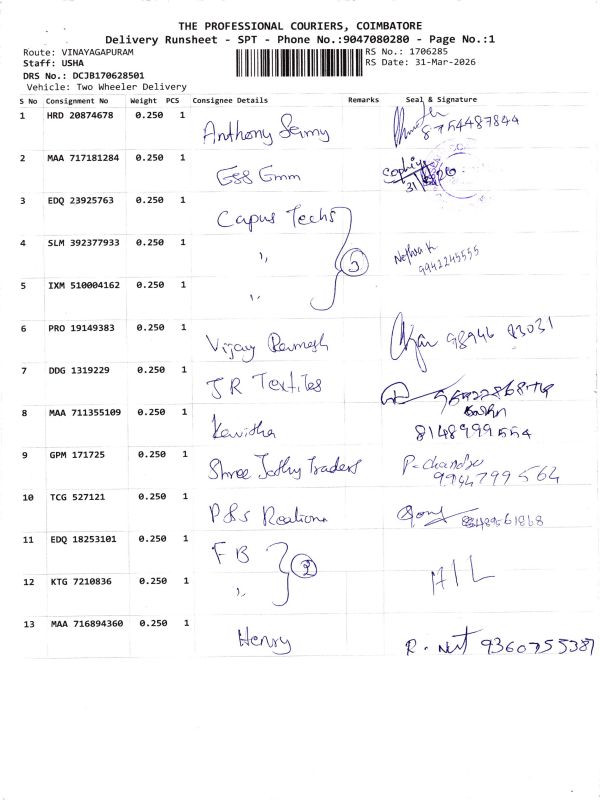 THE PROFESSIONAL COURIERS, COIMBATORE
Delivery Runsheet - SPT - Phone No.:9047080280 - Page No.:1
Route: VINAYAGAPURAM RS No.: 1706285
Staff: USHA RS Date: 31-Mar-2026
DRS No.: DCJB170628501
Vehicle: Two Wheeler Delivery
S No Consignment No Weight PCS Consignee Details Remarks Seal & Signature
1 HRD 20874678 0.250 1 Anthony 8754487844
2 MAA 717181284 0.250 1 ESS Emm
3 EDQ 23925763 0.250 1 Capus Techs
4 SLM 392377933 0.250 1 " 3 Nethra K
9942245555
5 IXM 510004162 0.250 1 "
6 PRO 19149383 0.250 1 Vijay Ramesh 98946 83031
7 DDG 1319229 0.250 1 JR Textiles
8 MAA 711355109 0.250 1 Kavitha 8148999554
9 GPM 171725 0.250 1 Shree Jothy Traders P. Chandra
9994799564
10 TCG 527121 0.250 1 P&S
11 EDQ 18253101 0.250 1 FB 2
12 KTG 7210836 0.250 1 "
13 MAA 716894360 0.250 1 Henry R. 9360755387